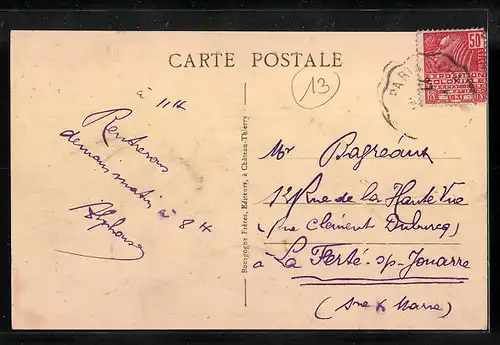 CARTE POSTALE
13
50c
POSTES
EXPOSITION
COLONIALE
INTERNATIONALE
PARIS
à 11H
Rentrerons
demain matin
à 8H
Alphonse
Bourgogne Frères, Editeurs, à Château-Thierry
Mr Bagréaux
12 Rue de la Haute Vue
(rue Clément Duburcq)
à La Ferté-s/-Jouarre
(Sne & Marne)